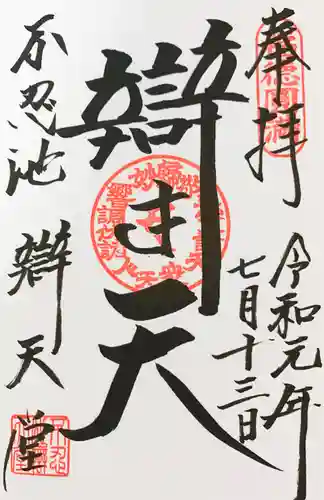 奉拝
令和元年
七月十三日
辯才天
不忍池
辯天堂